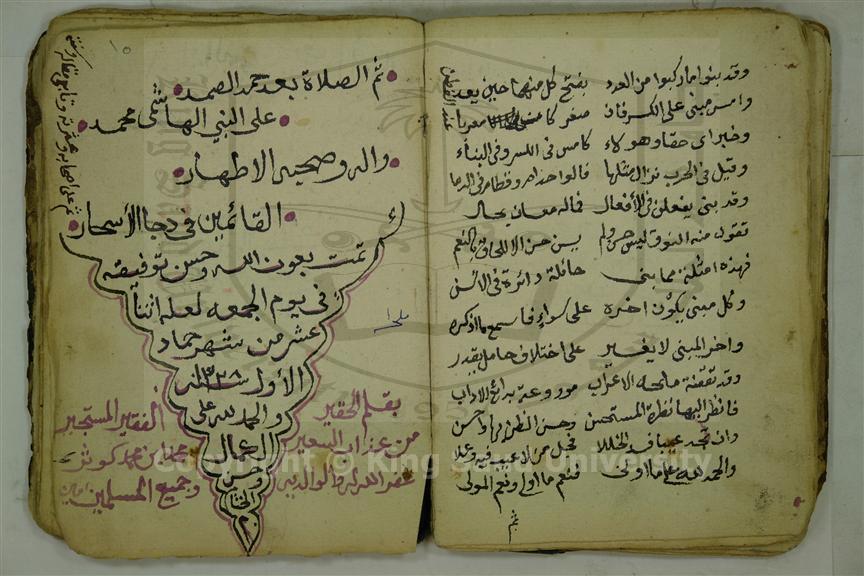 وقد بنوا ما ركبوا من العدد بفتح كل منهما حين يعد
وامس مبني على الكسر فان صغر كان معربا عند الفطن
وخبر اي حقا وهؤلاء كامس في الكسر وفي البناء
وقيل في الحرب نزال مثلما قالوا حذام وقطام في الدما
وقد بني يفعلن في الافعال فماله معان بحال
تقول منه النوق يسرحن ولم يسرحن الا للحاق بالنعم
فهذه امثلة مما بني جائلة دائرة في الالسن
وكل مبني يكون اخره على سواء فاسمع ما اذكره
واخر المبني لا يغير على اختلاف عامل يقدر
وقد تقضت ملحة الاعراب مودوعة بدائع الاداب
فانظر اليها نظرة المستحسن وحسن الظن بها واحسن
وان تجد عيبا فسد الخللا فجل من لا عيب فيه وعلا
والحمد لله على ما اولى فنعم ما اولى ونعم المولى
ثم
١٥
ثم الصلاة بعد حمد الصمد
على النبي الهاشمي محمد
واله وصحبه الاطهار
القائمين في دجا الأسحار
ثم على اصحابه وعترته وتابعي مقاله وسنته
تمت بعون الله وحسن توفيقه
في يوم الجمعه لعله اثنا
عشر من شهر جماد
الأول سنة ١٣٢٨
والحمد لله على
الكمال
وحسن
الختام
م
بقلم الحقير الفقير المستجير
من عذاب السعير محمد ابن محمد
غفر الله له والوالديه وجميع المسلمين امين
Copyright © King Saud University